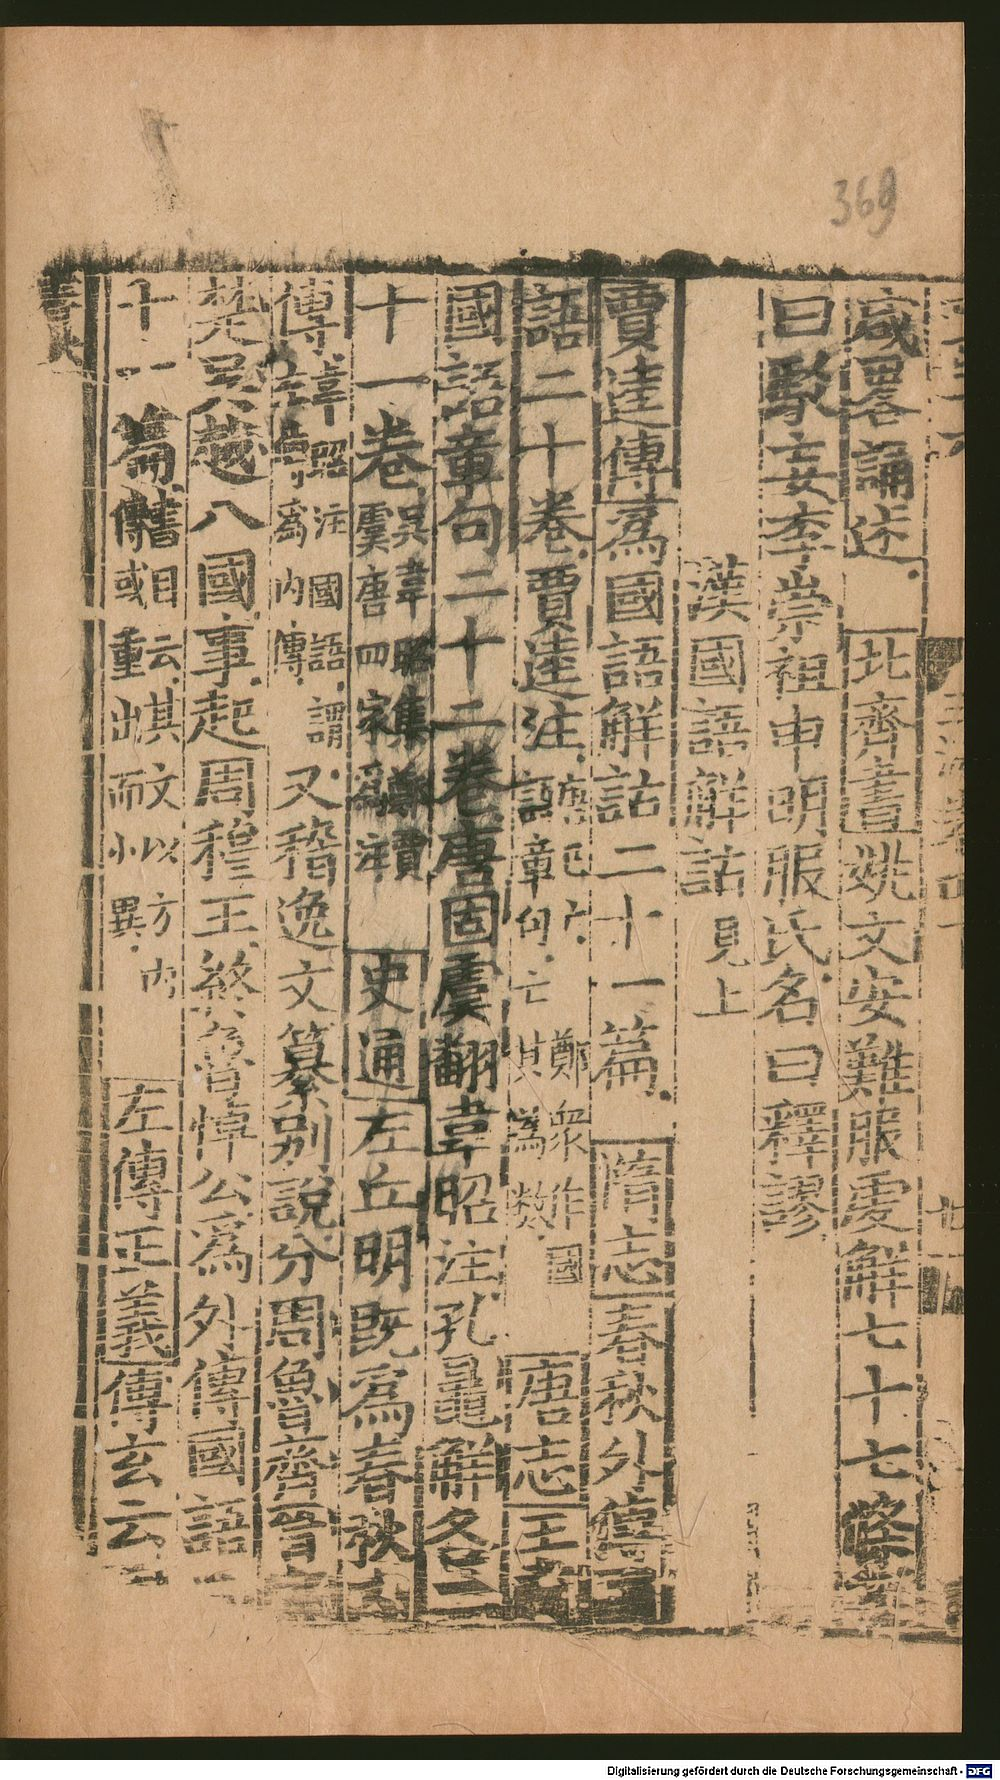 369
咸畧誦述北齊書姚文安難服虔解七十七條
曰駮妄李崇祖申明服氏名曰釋謬
漢國語解詁見上
賈逵傳為國語解詁二十一篇隋志春秋外傳國
語二十卷賈逵注唐已亡鄭衆作國語章句亡其篇數唐志王
國語章句二十二卷唐固虞翻韋昭注孔鼂解各二
十一卷吳韋昭集鄭賈虞唐四家為注史通左丘明既為春秋內
傳韋昭注國語謂左傳為內傳又稽逸文纂別說分周魯齊晉
楚吳越八國事起周穆王終魯悼公為外傳國語
十一篇舊目云其文以方內傳或重出而小異左傳正義傳玄云
Digitalisierung gefördert durch die Deutsche Forschungsgemeinschaft - DFG